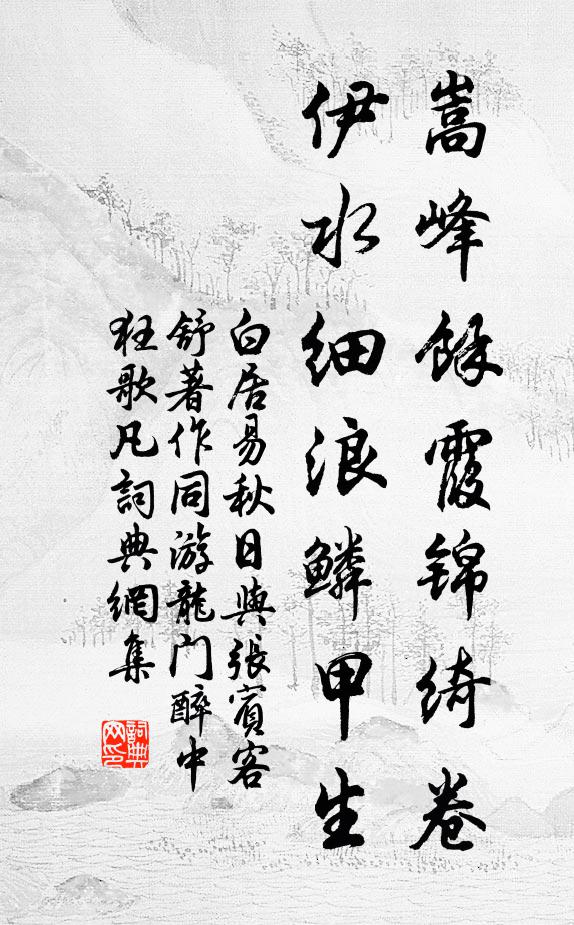 嵩峰餘霞錦綺卷
伊水細浪鱗甲生
白居易秋日與張賓客
舒著作同游龍门醉中
狂歌凡詞典網集
詞典
网印